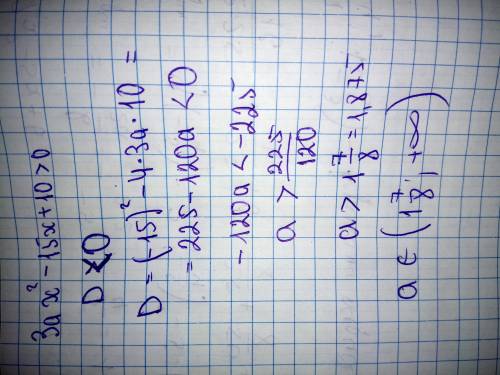 3ax² - 15x + 10 > 0
D < 0
D = (-15)² - 4·3a·10 =
= 225 - 120a < 0
- 120a < -225
a > 225/120
a > 1 7/8 = 1,875
a ∈ (1 7/8; +∞)